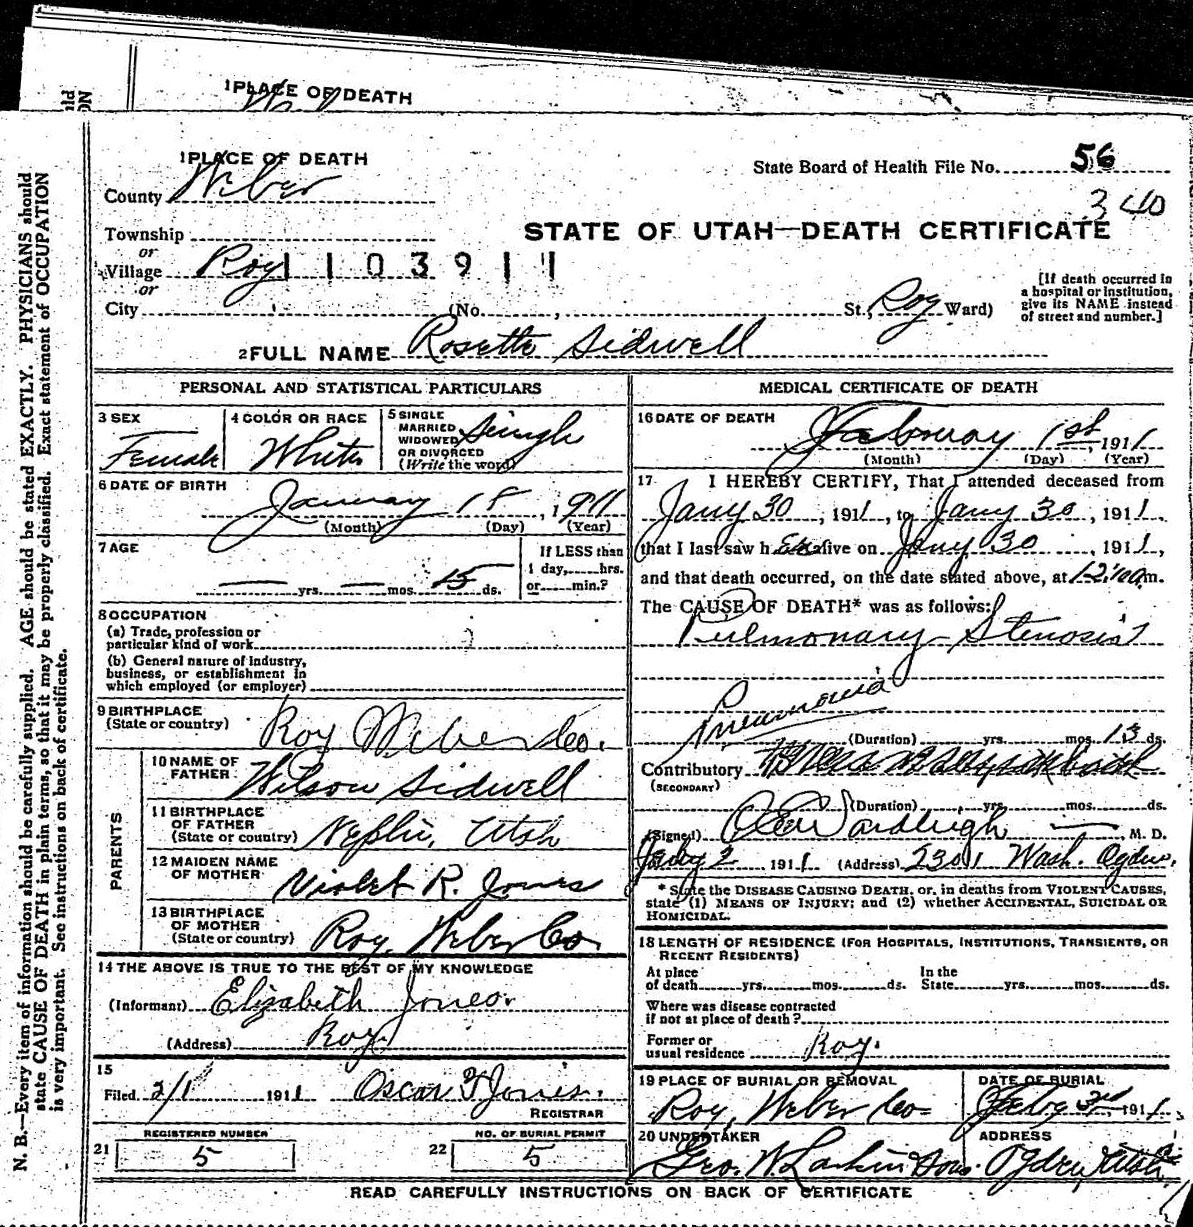 1 PLACE OF DEATH
1 PLACE OF DEATH
State Board of Health File No. 56
County Weber
340
STATE OF UTAH—DEATH CERTIFICATE
Township
or
Village Roy 1 1 0 3 9 1 1
or
City (No. , St., Roy Ward)
[If death occurred in
a hospital or institution,
give its NAME instead
of street and number.]
2 FULL NAME Rosette Sidwell
PERSONAL AND STATISTICAL PARTICULARS
3 SEX Female
4 COLOR OR RACE White
5 SINGLE
MARRIED
WIDOWED
OR DIVORCED
(Write the word) Single
6 DATE OF BIRTH
January 18, 1911
(Month) (Day) (Year)
7 AGE
— yrs. — mos. 15 ds.
If LESS than
1 day, hrs.
or min.?
8 OCCUPATION
(a) Trade, profession or
particular kind of work
(b) General nature of industry,
business, or establishment in
which employed (or employer)
9 BIRTHPLACE
(State or country) Roy Weber Co.
PARENTS
10 NAME OF
FATHER Wilson Sidwell
11 BIRTHPLACE
OF FATHER
(State or country) Nephi, Utah
12 MAIDEN NAME
OF MOTHER Violet R. Jones
13 BIRTHPLACE
OF MOTHER
(State or country) Roy, Weber Co
14 THE ABOVE IS TRUE TO THE BEST OF MY KNOWLEDGE
(Informant) Elizabeth Jones.
(Address) Roy
15
Filed 2/1 1911 Oscar F Jones.
REGISTRAR
REGISTERED NUMBER
21 5
NO. OF BURIAL PERMIT
22 5
MEDICAL CERTIFICATE OF DEATH
16 DATE OF DEATH
February 1st, 1911
(Month) (Day) (Year)
17 I HEREBY CERTIFY, That I attended deceased from
Jany 30, 1911, to Jany 30, 1911,
that I last saw h er alive on Jany 30, 1911,
and that death occurred, on the date stated above, at 12:10 a m.
The CAUSE OF DEATH* was as follows:
Pulmonary Stenosis
Pneumonia
(Duration) yrs. mos. 13 ds.
Contributory
(SECONDARY)
(Duration) yrs. mos. ds.
(Signed) Wardleigh — M. D.
2 1911 (Address) 2301 Wash. Ogden.
* State the DISEASE CAUSING DEATH, or, in deaths from VIOLENT CAUSES,
state (1) MEANS OF INJURY; and (2) whether ACCIDENTAL, SUICIDAL OR
HOMICIDAL.
18 LENGTH OF RESIDENCE (FOR HOSPITALS, INSTITUTIONS, TRANSIENTS, OR
RECENT RESIDENTS)
At place
of death yrs. mos. ds.
In the
State yrs. mos. ds.
Where was disease contracted
if not at place of death?
Former or
usual residence Roy.
19 PLACE OF BURIAL OR REMOVAL
Roy, Weber Co
DATE OF BURIAL
Feby 3rd 1911
20 UNDERTAKER
Geo. W. Larkin Sons.
ADDRESS
Ogden, Utah
READ CAREFULLY INSTRUCTIONS ON BACK OF CERTIFICATE
N. B.—Every item of information should be carefully supplied. AGE should be stated EXACTLY. PHYSICIANS should
state CAUSE OF DEATH in plain terms, so that it may be properly classified. Exact statement of OCCUPATION
is very important. See instructions on back of certificate.